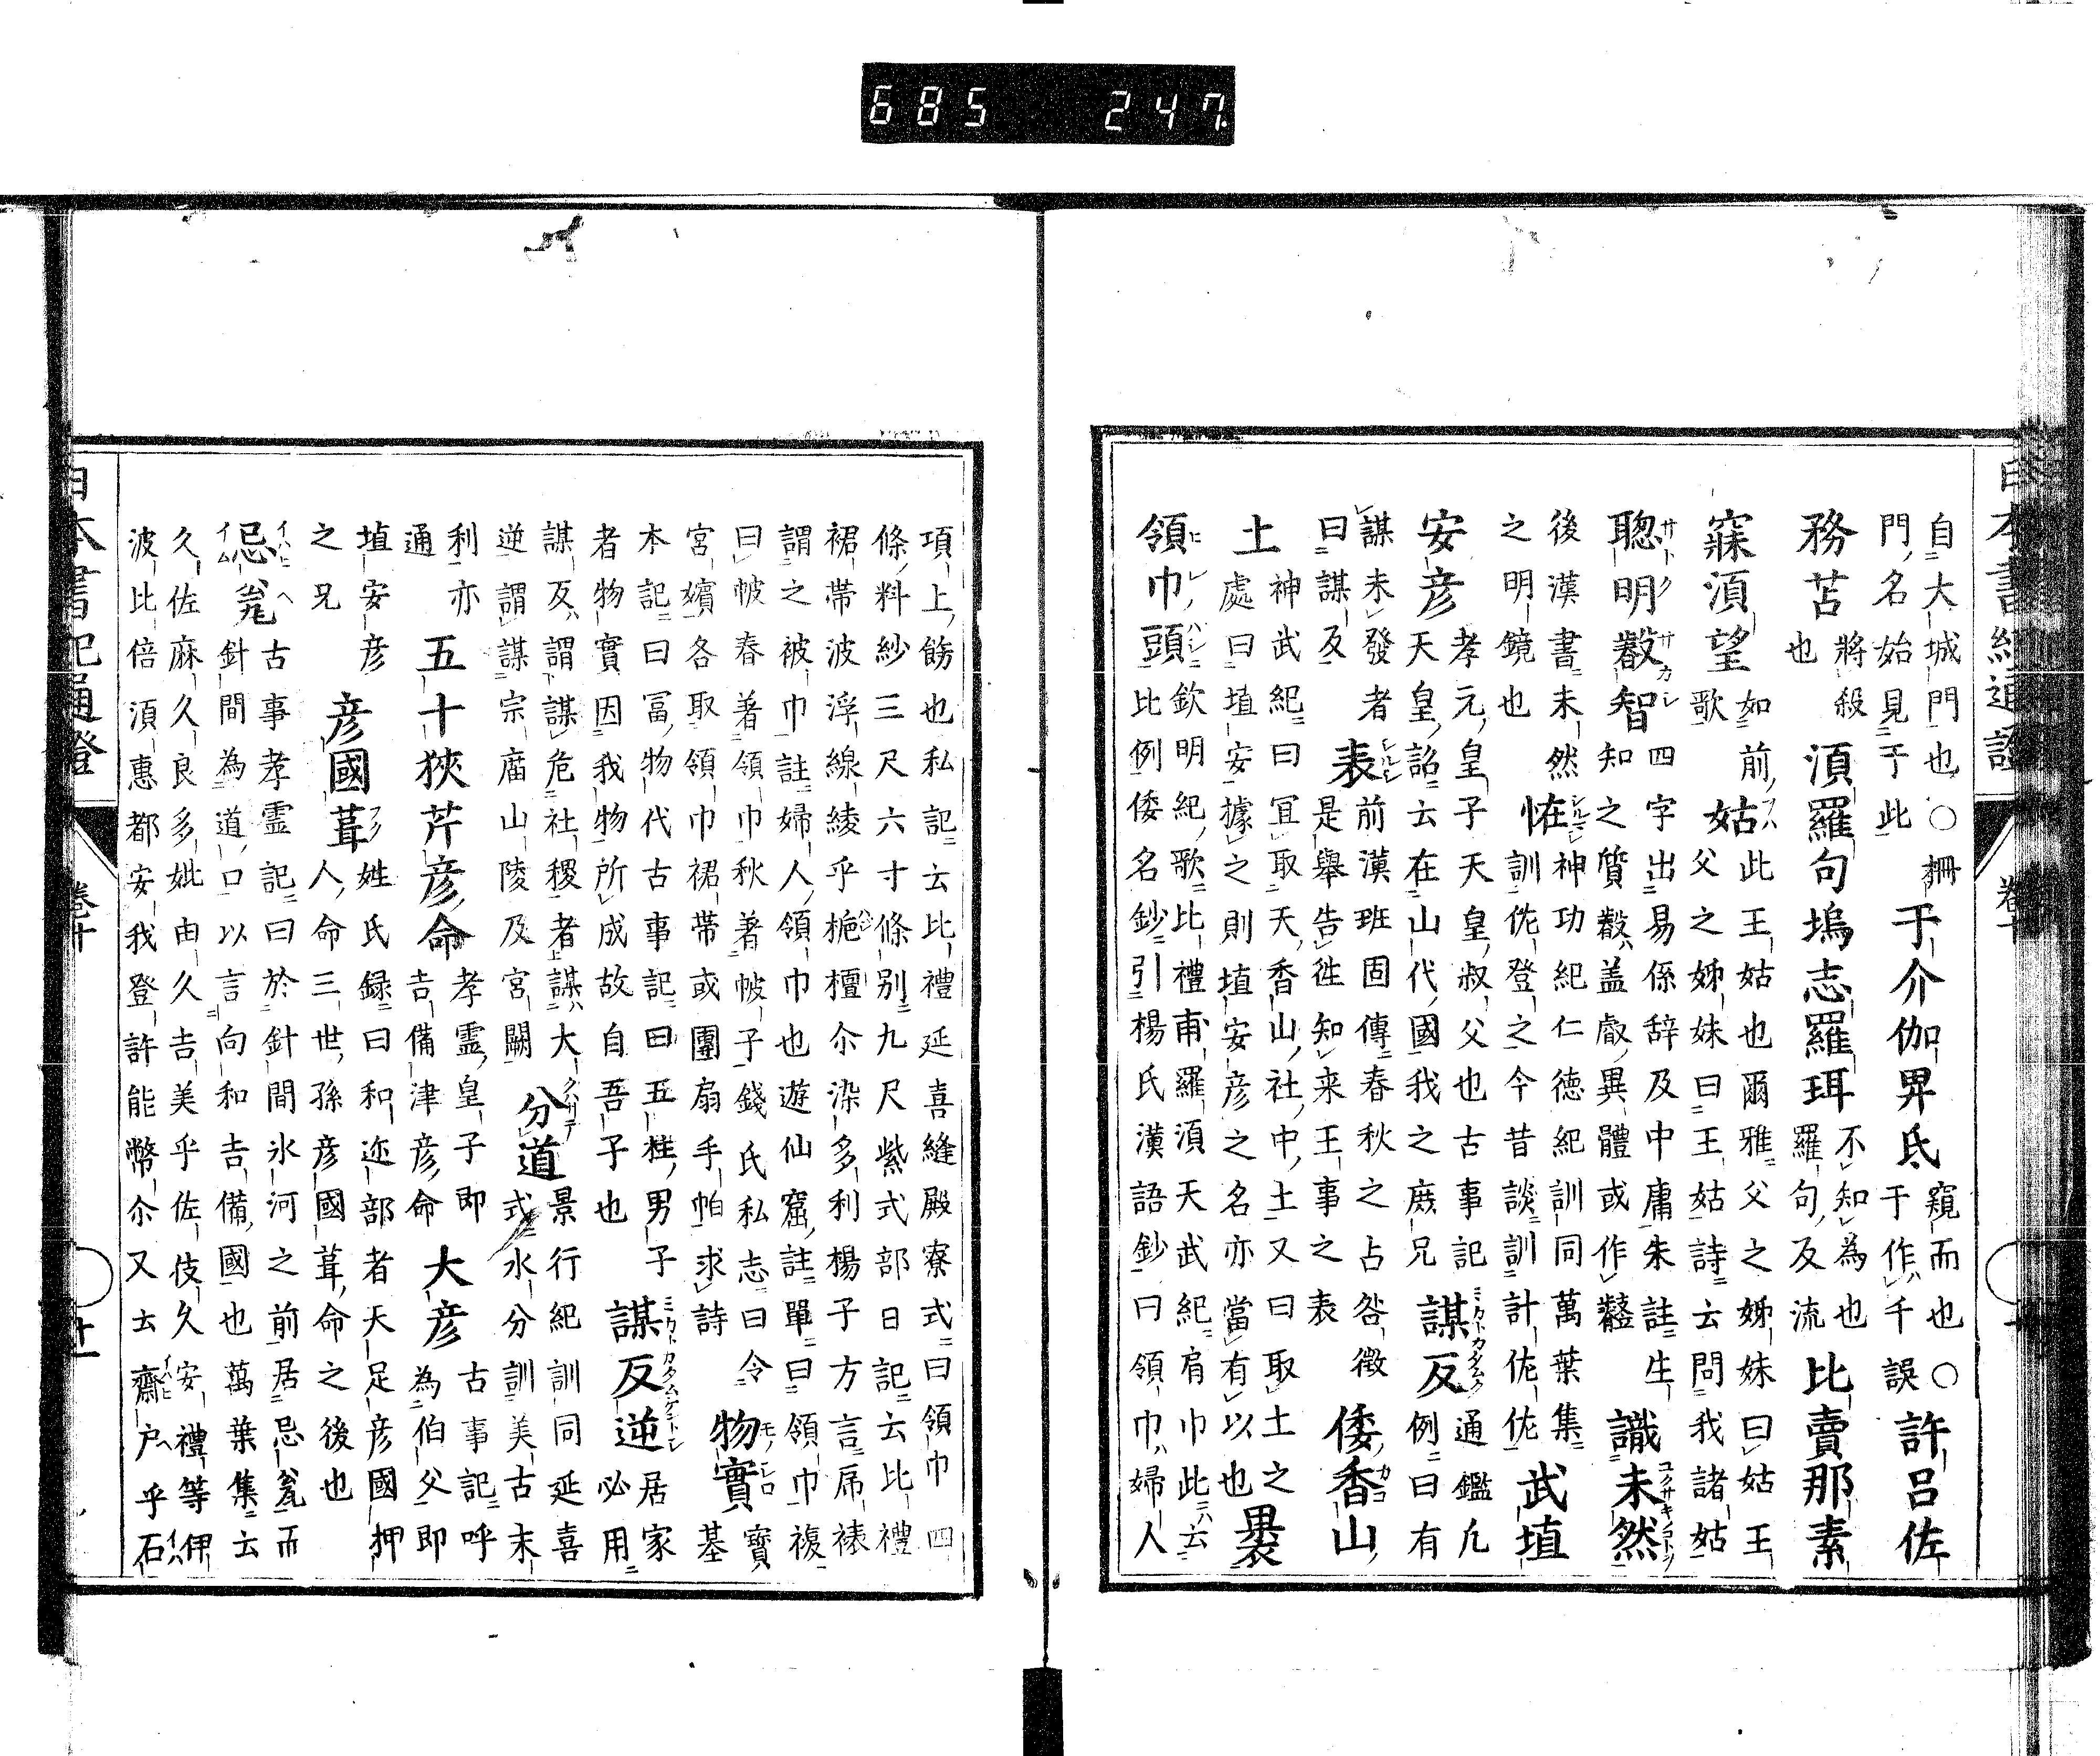 685 247
日本書紀通證
卷十
自大城門也○柵
門名始見于此
于介伽卑氐
窺而也○
于作千誤
許呂佐
務苫
將殺
也
須羅句塢志羅珥
不知為也
羅句反流
比賣那素
寐須望
如前
歌
姑
此王姑也爾雅父之姊妹曰姑王
父之姊妹曰王姑詩云問我諸姑
聰明叡智
四字出易係辞及中庸朱註生
知之質叡盖叡異體或作
識未然
後漢書未然
之明鏡也
恠
神功紀仁徳紀訓同萬葉集
訓佐登之今昔談訓計佐佐
武埴
安彦
孝元皇子天皇叔父也古事記
天皇詔云在山代國我之庶兄
謀反
通鑑凡
例曰有
謀未發者
曰謀反
表
前漢班固傳春秋之占咎徴
是舉告徃知来王事之表
倭香山
土
神武紀曰冝取天香山社中土又曰取土之
處曰埴安據之則埴安彦之名亦當有以也
裹
領巾頭
欽明紀歌比禮甫羅須天武紀肩巾此云
比例倭名鈔引楊氏漢語鈔曰領巾婦人
項上餝也私記云比禮延喜縫殿寮式曰領巾四
條料紗三尺六寸條別九尺紫式部日記云比禮
裙帯波浮線綾乎栀檀尒染多利楊子方言帍裱
謂之被巾註婦人領巾也遊仙窟註單曰領巾複
曰帔春著領巾秋著帔子錢氏私志曰令
宮嬪各取領巾裙帯或團扇手帕求詩
物實
寳基
本記曰冨物代古事記曰五柱男子
者物實因我物所成故自吾子也
謀反逆
居家
必用
謀反謂謀危社稷者謀大
逆謂謀宗庿山陵及宮闕
分道
景行紀訓同延喜
式水分訓美古末
利亦
通
五十狹芹彦命
孝霊皇子即
吉備津彦命
大彦
古事記呼
為伯父即
埴安彦
之兄
彦國葺
姓氏録曰和迩部者天足彦國押
人命三世孫彦國葺命之後也
忌瓮
古事孝霊記曰於針間氷河之前居忌瓮而
針間為道口以言向和吉備國也萬葉集云
久佐麻久良多妣由久吉美乎佐伎久安禮等伊
波比倍須惠都安我登許能幣尒又云齋戸乎石
日本書紀通證
卷十
十一